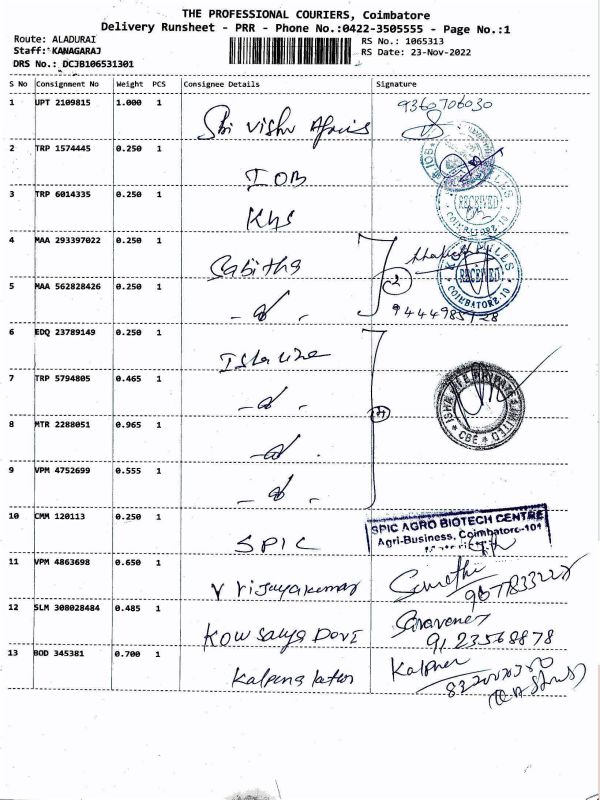 THE PROFESSIONAL COURIERS, Coimbatore
Delivery Runsheet - PRR - Phone No.:0422-3505555 - Page No.:1
Route: ALADURAI
Staff: KANAGARAJ
DRS No.: DCJB106531301
RS No.: 1065313
RS Date: 23-Nov-2022
S No Consignment No Weight PCS Consignee Details Signature
1 UPT 2109815 1.000 1 Sri Vishu 9360706030
2 TRP 1574445 0.250 1 IOB
3 TRP 6014335 0.250 1 RECEIVED COIMBATORE-10
4 MAA 293397022 0.250 1 Sabitha
5 MAA 562828426 0.250 1 2 RECEIVED COIMBATORE-10
6 EDQ 23789149 0.250 1
7 TRP 5794805 0.465 1 PRIVATE LIMITED CBE
8 MTR 2288051 0.965 1
9 VPM 4752699 0.555 1
10 CMM 120113 0.250 1 SPIC SPIC AGRO BIOTECH CENTRE
Agri-Business, Coimbatore-101
11 VPM 4863698 0.650 1 V Vijayakumar Sumathi
12 SLM 308028484 0.485 1 Kowsalya Devi Saravanan
9123568878
13 BOD 345381 0.700 1 Kalpana